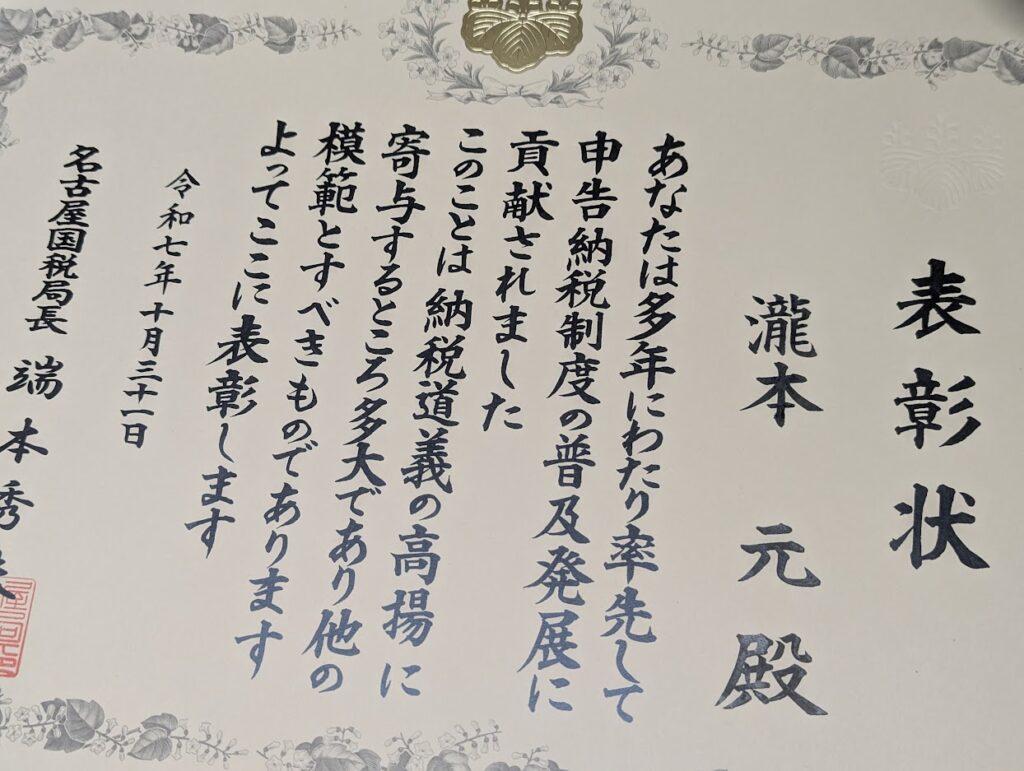 表彰状
瀧本 元 殿
あなたは多年にわたり率先して
申告納税制度の普及発展に
貢献されました
このことは納税道義の高揚に
寄与するところ多大であり他の
模範とすべきものであります
よってここに表彰します
令和七年十月三十一日
名古屋国税局長 端本秀